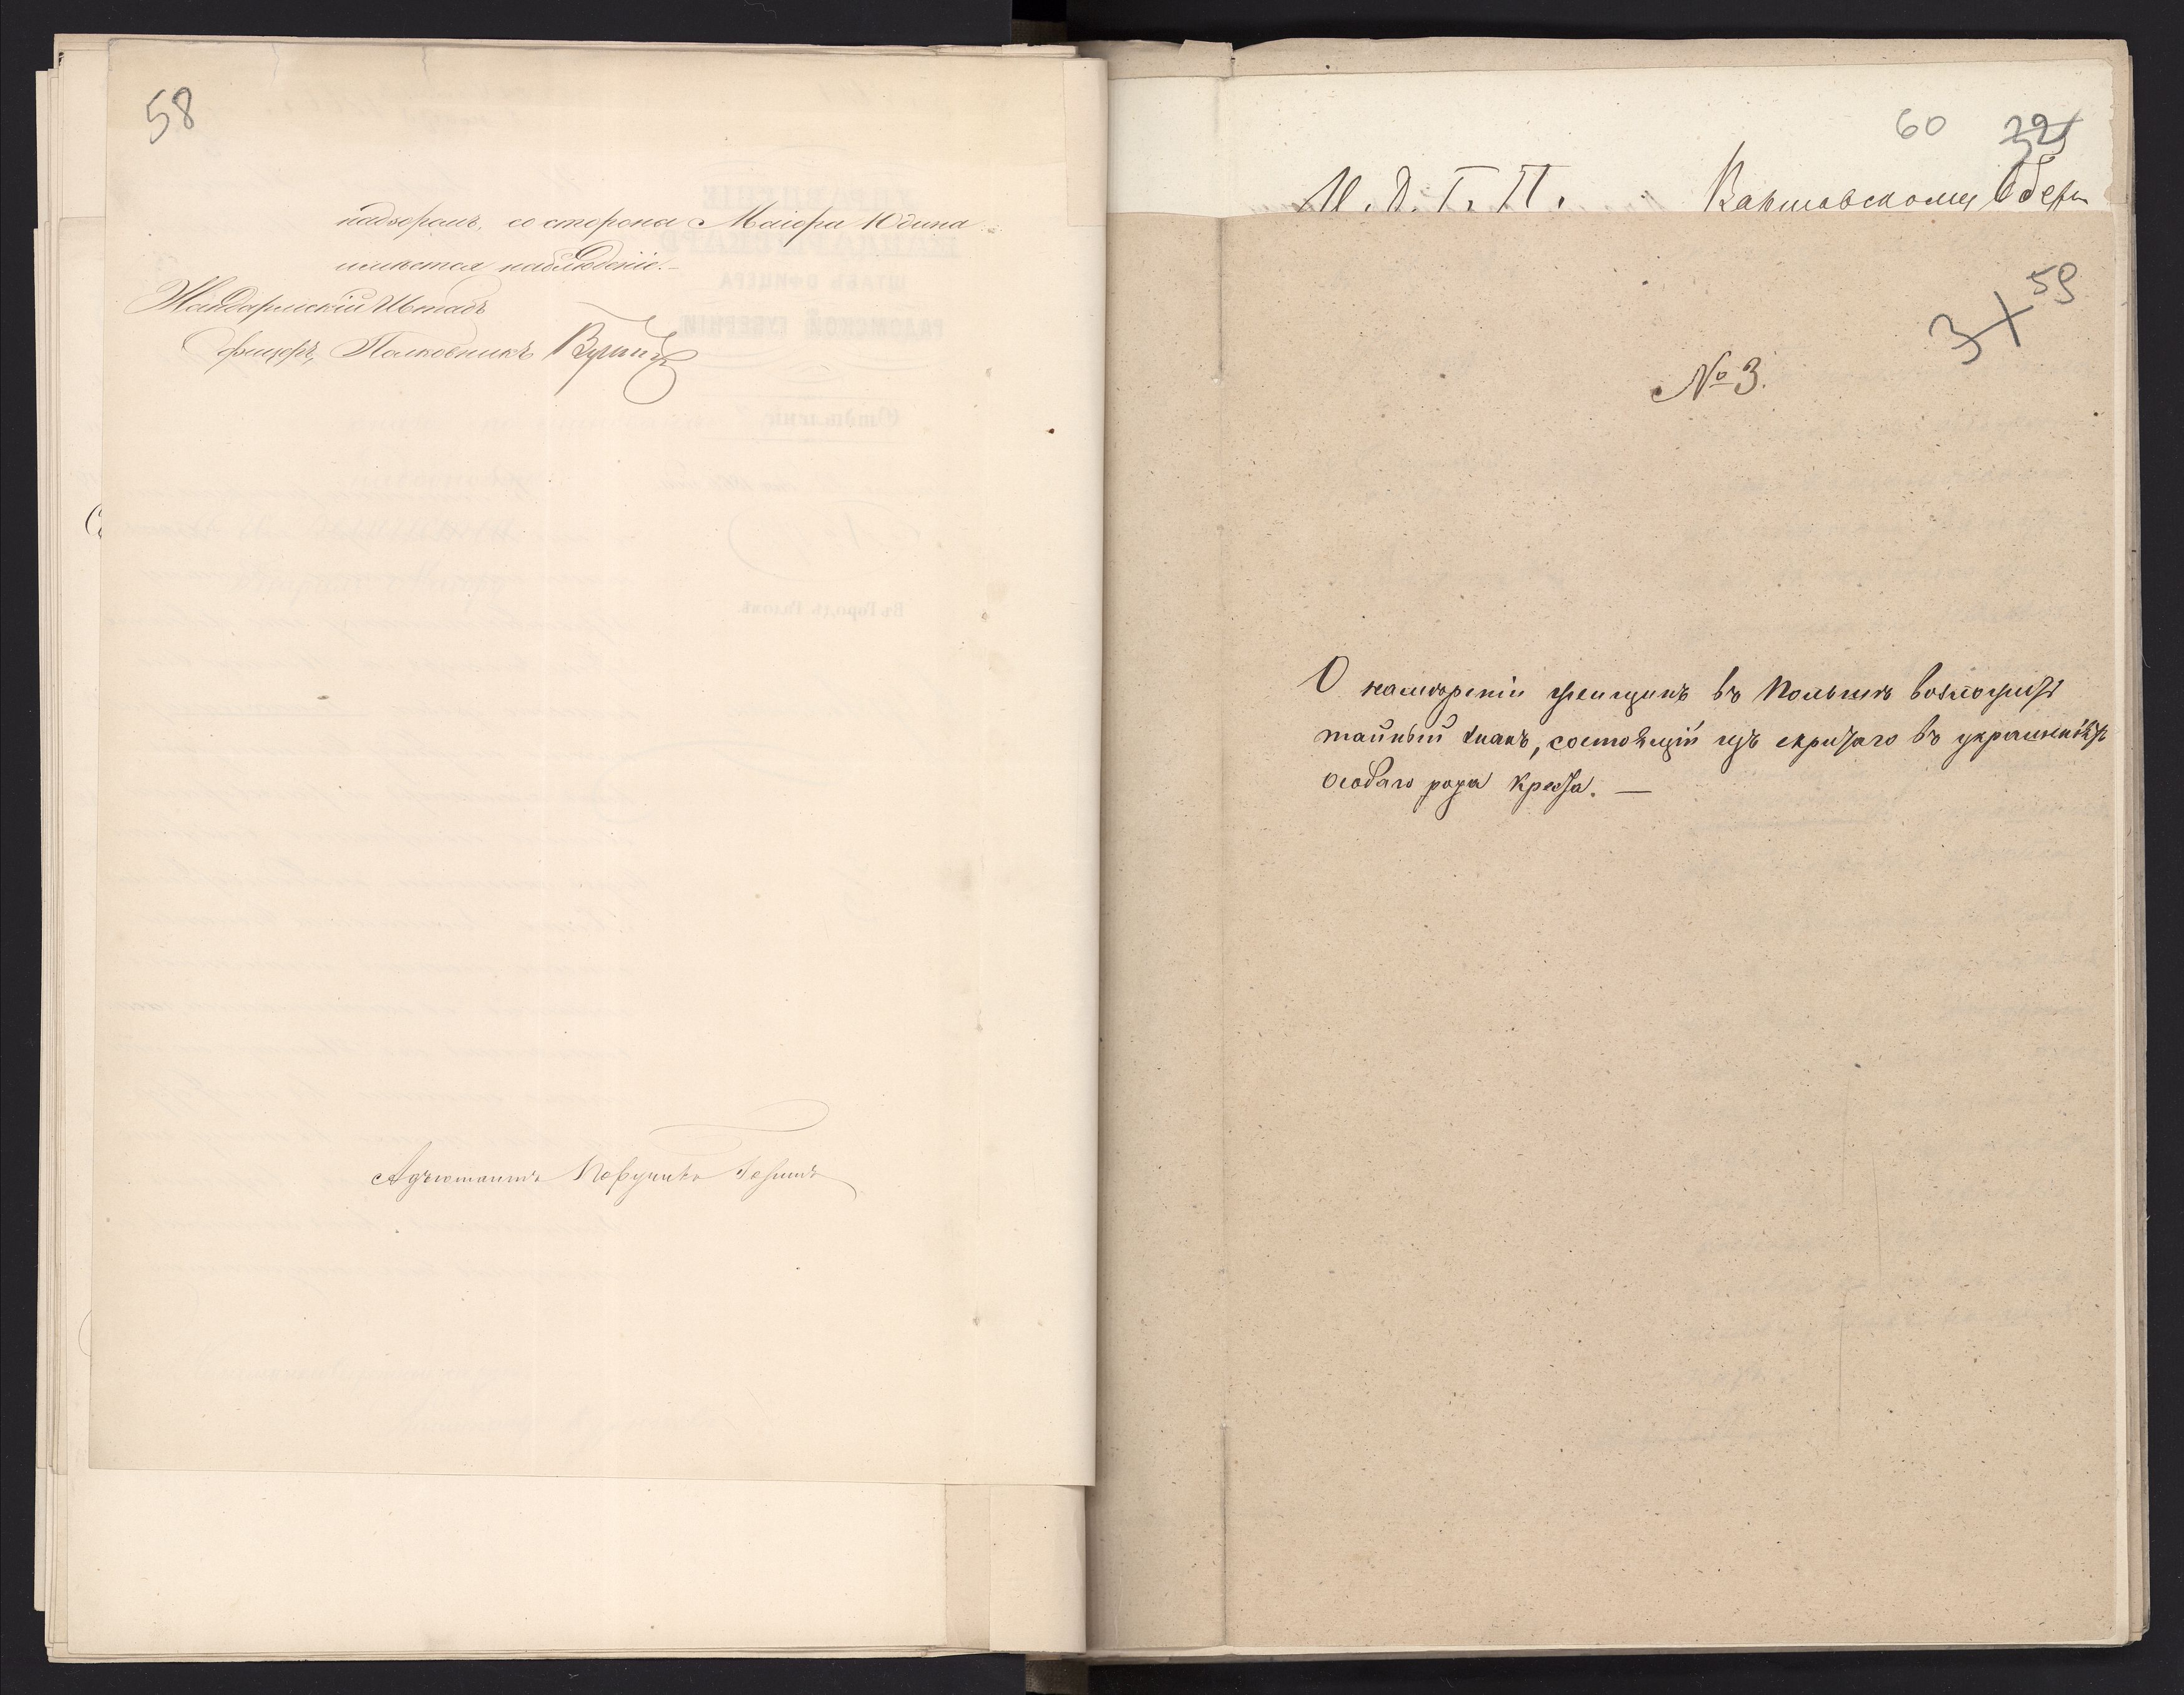 58
надзоромъ, со стороны Маіора Юдина
имѣется наблюденіе.
Жандармскій Штабъ
Офицеръ, Полковникъ
Адъютантъ Поручикъ
60
М. Д. Г. П. Варшавскому Оберъ
59
3
№ 3.
О намѣреніи женщинъ въ Польшѣ возложить
тайный знакъ, состоящій изъ скрытаго въ украшеніяхъ
особаго рода креста. —